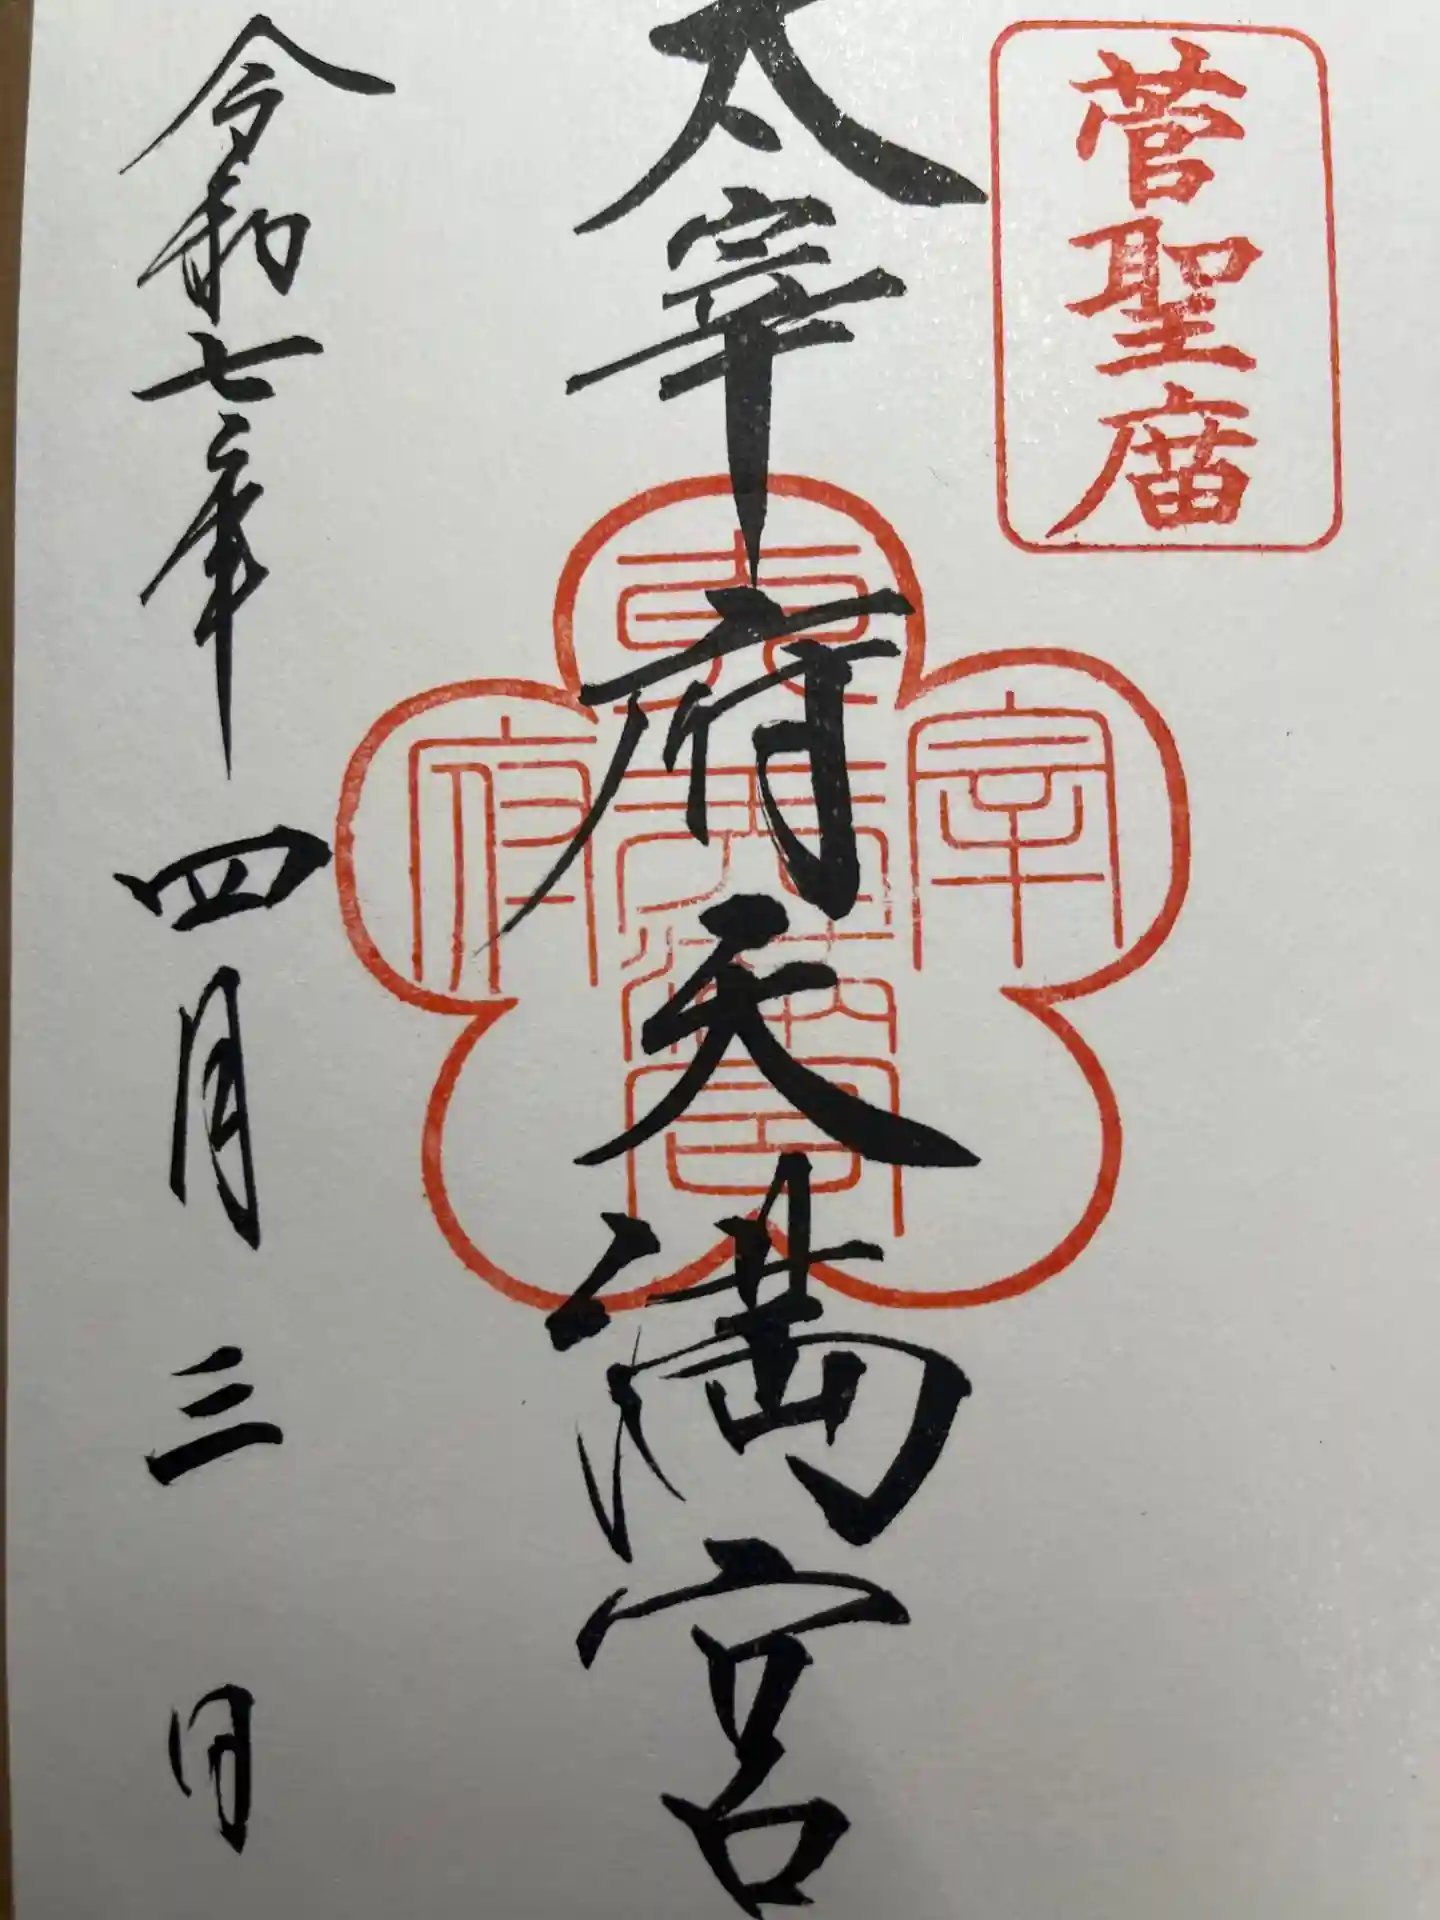 菅聖廟
太宰府天満宮
宰
府
令和七年四月三日